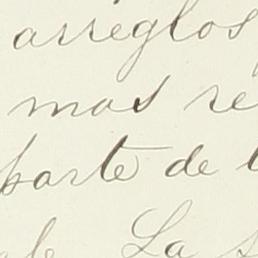 arreglos
mas re
parte de
La